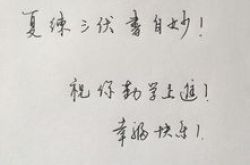 夏练三伏書自妙!
祝你勤学上進!
幸福快乐!